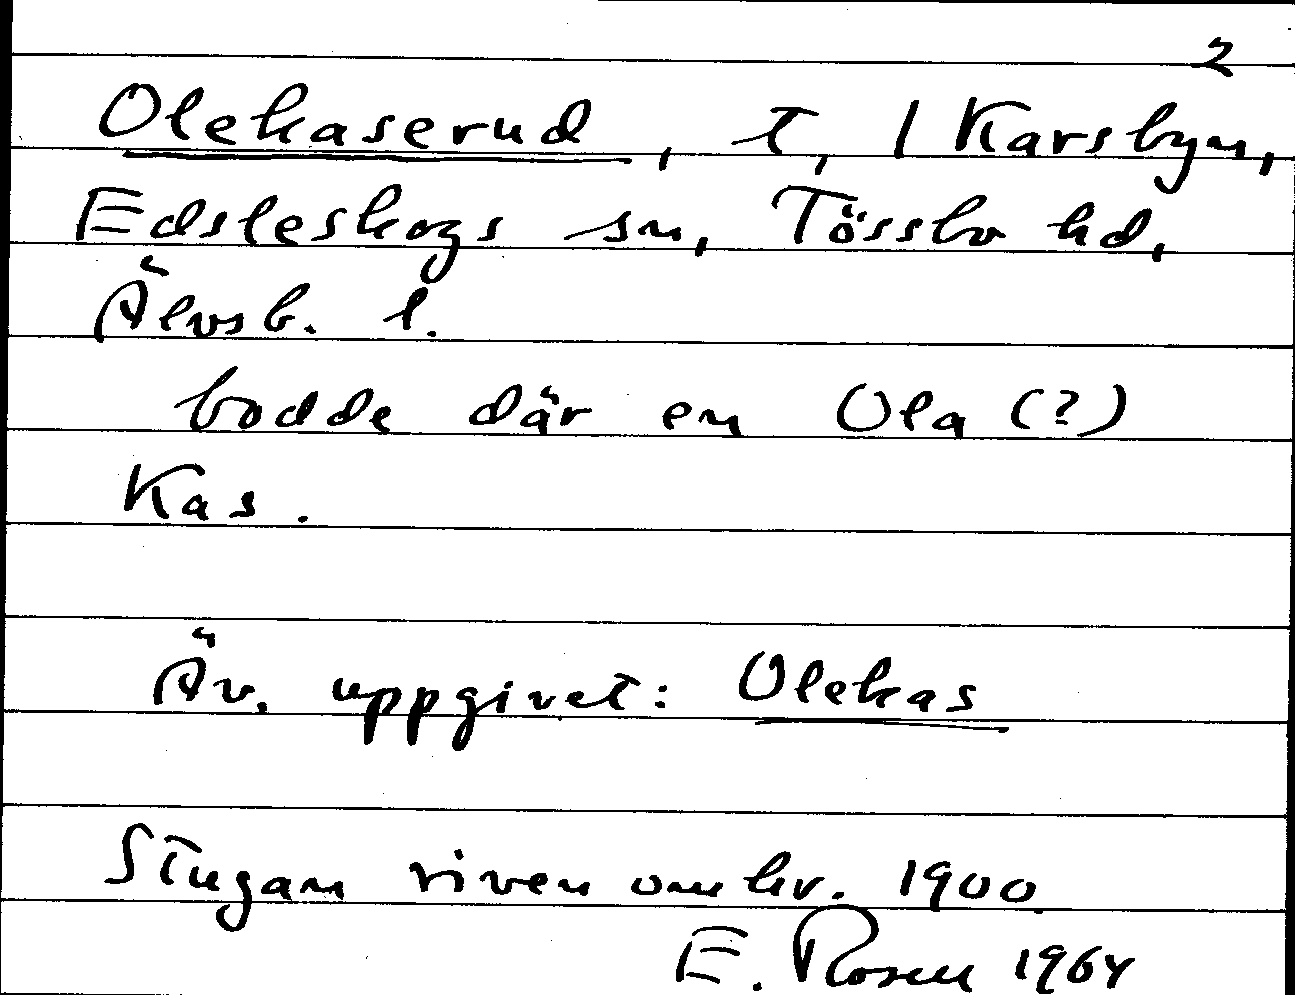 2
Olekaserud, t, 1 Karsbyn,
Edsleskogs sn, Tössbo hd,
Älvsb. l.
bodde där en Ola (?)
Kas.
Äv. uppgivet: Olekas
Stugan riven omkr. 1900
E. Rosen 1964